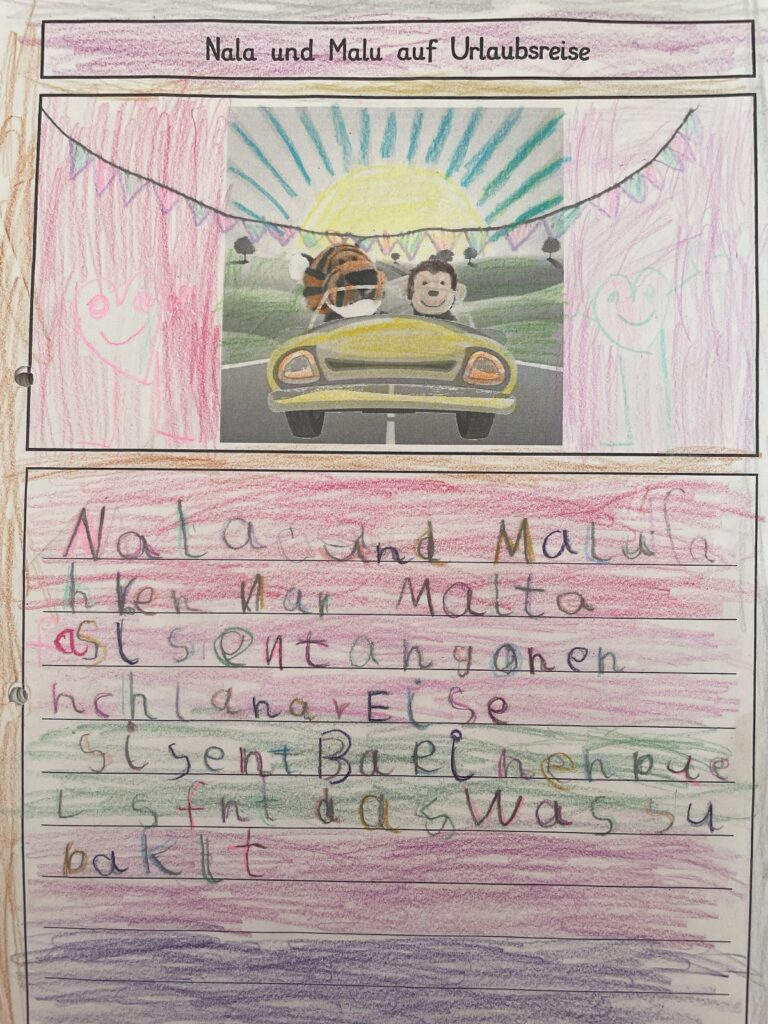 Nala und Malu auf Urlaubsreise
Nala und Malu fa
hren nar Malta
asi sentangonen
nchlanarEise
sisentBaeinenpue
l sfnt das Wassu
baklt